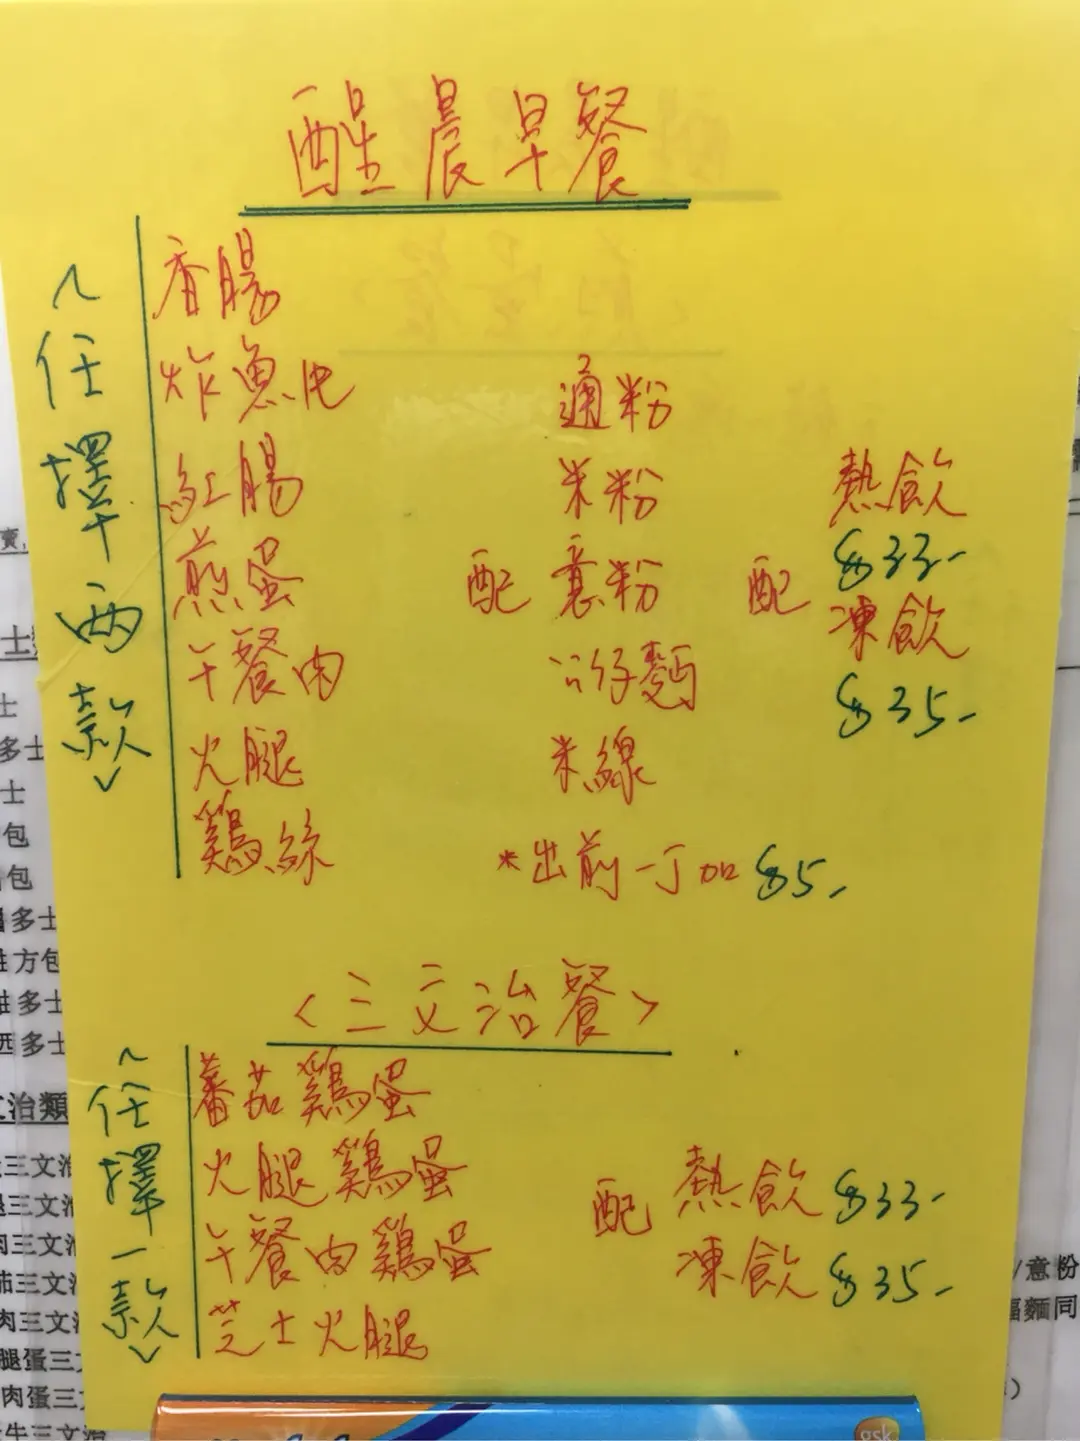 醒晨早餐
<任擇兩款>
香腸
炸魚比
紅腸
煎蛋
午餐肉
火腿
鷄絲
配
通粉
米粉
意粉
公仔麵
米線
配
熱飲
$33-
凍飲
$35-
*出前一丁加$5-
<三文治餐>
<任擇一款>
蕃茄鷄蛋
火腿鷄蛋
午餐肉鷄蛋
芝士火腿
配
熱飲$33-
凍飲$35-
賣.
士
多士
士
包
包
多士
方包
多士
西多士
文治類
三文治
三文治
肉三文治
茄三文治
肉三文
腿蛋三文
肉蛋三
牛三文治
/意粉
福麵同
)
gsk